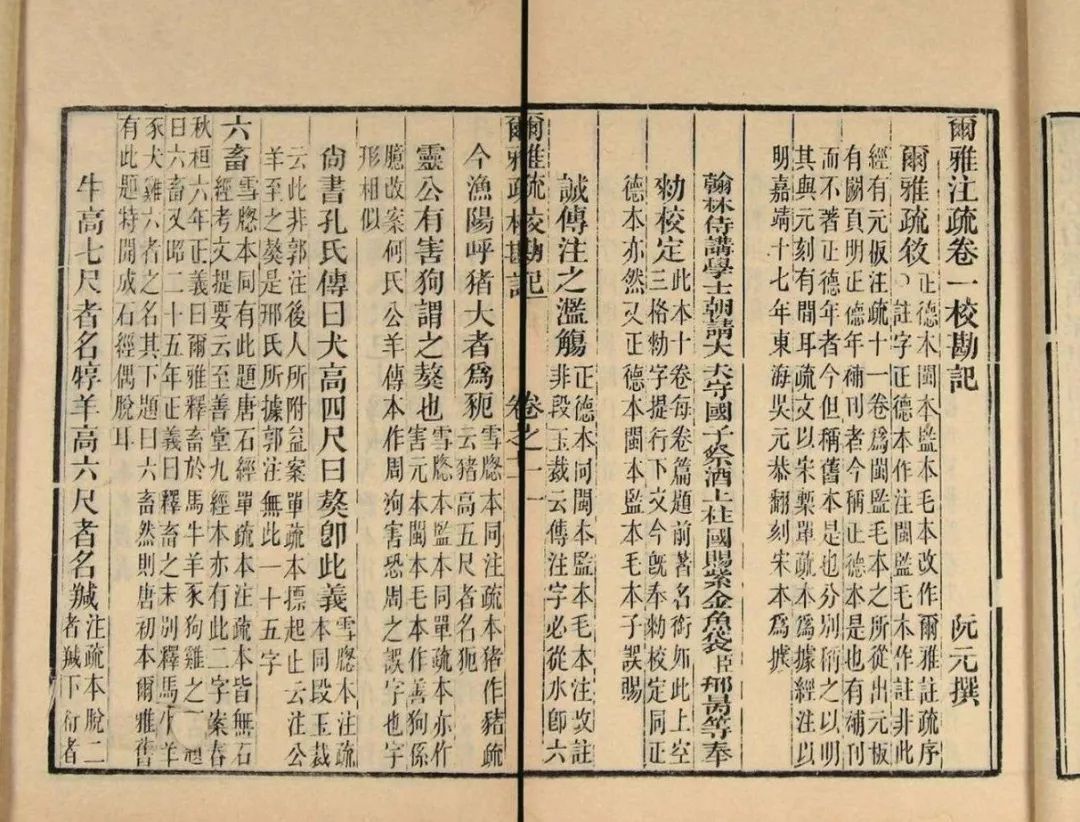 爾雅注疏卷一校勘記　阮元撰
爾雅疏敘○正德本閩本監本毛本改作爾雅註疏序
註字正德本作注閩監毛本作註非此
經有元板注疏十一卷爲閩監毛本之所從出元板
有闕頁明正德年補刊者今稱正德本是也有補刊
而不著正德年者今但稱舊本是也分別稱之以明
其與元刻有間耳疏文以宋槧單疏本爲據經注以
明嘉靖十七年東海吳元恭翻刻宋本爲據
翰林侍講學士朝請大夫守國子祭酒上柱國賜紫金魚袋臣邢昺等奉
勑校定此本十卷每卷篇題前著名銜如此上空
三格勑字提行下文今旣奉勑校定同正
德本亦然又正德本閩本監本毛本子誤賜
誠傳注之濫觴正德本同閩本監本毛本注改註
非段玉裁云傳注字必從水卽六
爾雅疏校勘記　卷之十一
今漁陽呼豬大者爲豝雪牕本同注疏本豬作豬疏
云豬高五尺者名豝
靈公有害狗謂之獒也害元本閩本毛本作善狗係
監本同單疏本亦作
臆改案何氏公羊傳本作周狗害恐周之誤字也字
形相似
尙書孔氏傳曰犬高四尺曰獒卽此義雪牕本注疏
本同段玉裁
云此非郭注後人所附益案單疏本標起止云注公
羊至之獒是邢氏所據郭注無此一十五字
六畜雪牕本同有此題唐石經單疏本注疏本皆無石
經考文提要云至善堂九經本亦有此二字案春
秋桓六年正義曰爾雅釋畜於馬牛羊豕狗雞之下題
曰六畜又昭二十五年正義曰釋畜之末別釋馬牛羊
豕犬雞六者之名其下題曰六畜然則唐初本爾雅舊
有此題特開成石經偶脫耳
牛高七尺者名犉羊高六尺者名羬注疏本脫二
者羬下衍者